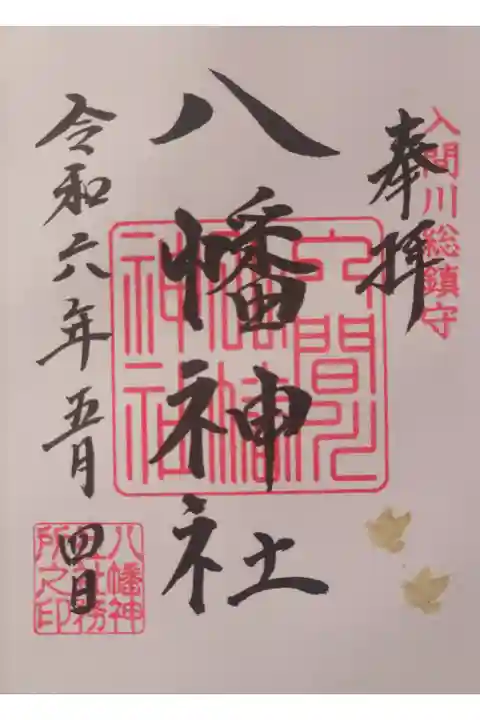 入間川総鎮守
奉拝
八幡神社
入間川
八幡
神社
令和六年五月四日
八幡神
社社務
所之印